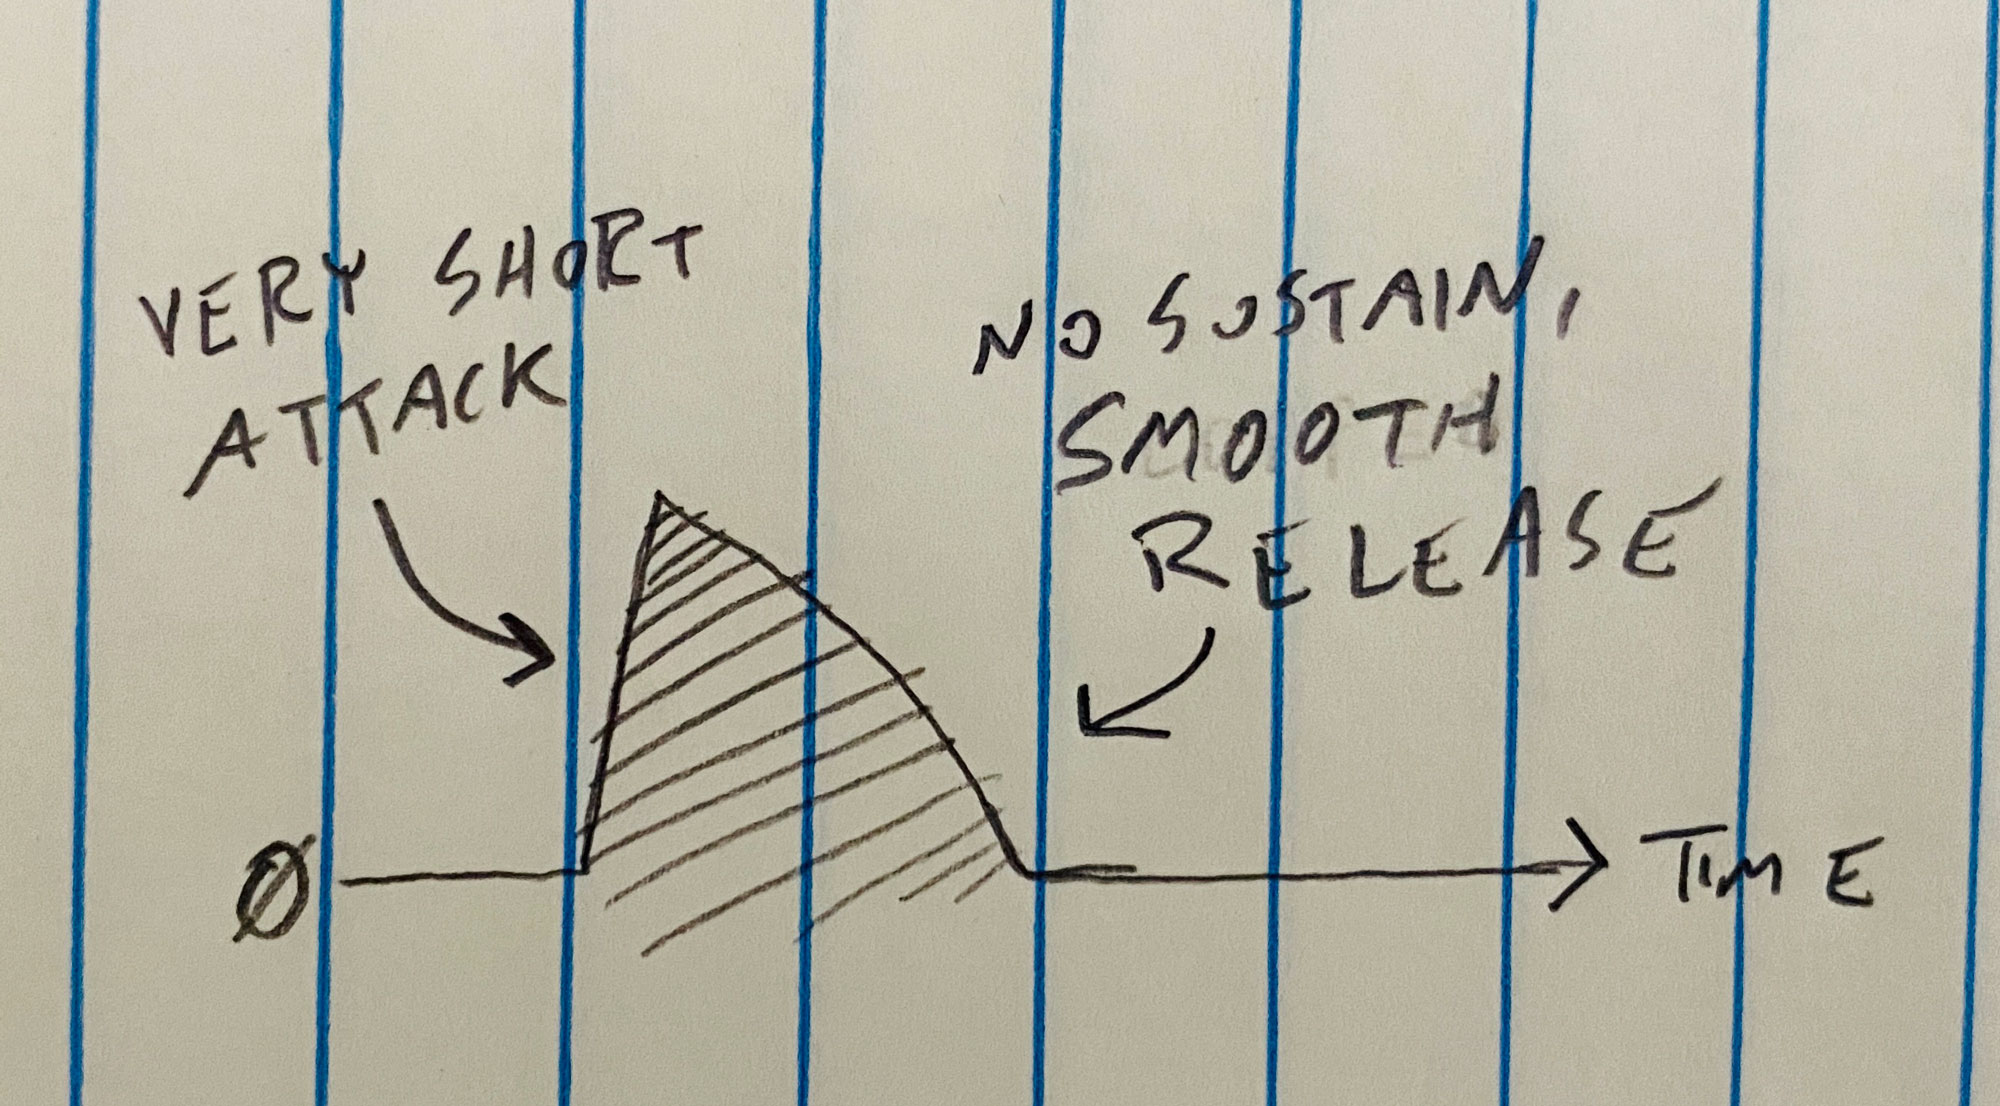 VERY SHORT
ATTACK
NO SUSTAIN,
SMOOTH
RELEASE
Ø
TIME